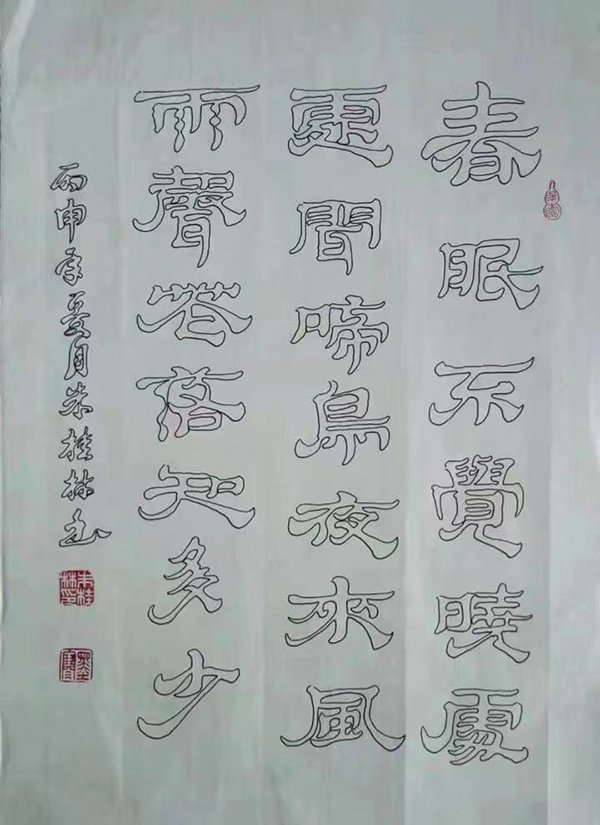 春眠不覺曉處
處聞啼鳥夜來風
雨聲花落知多少
丙申年夏月朱桂林书
朱桂林印